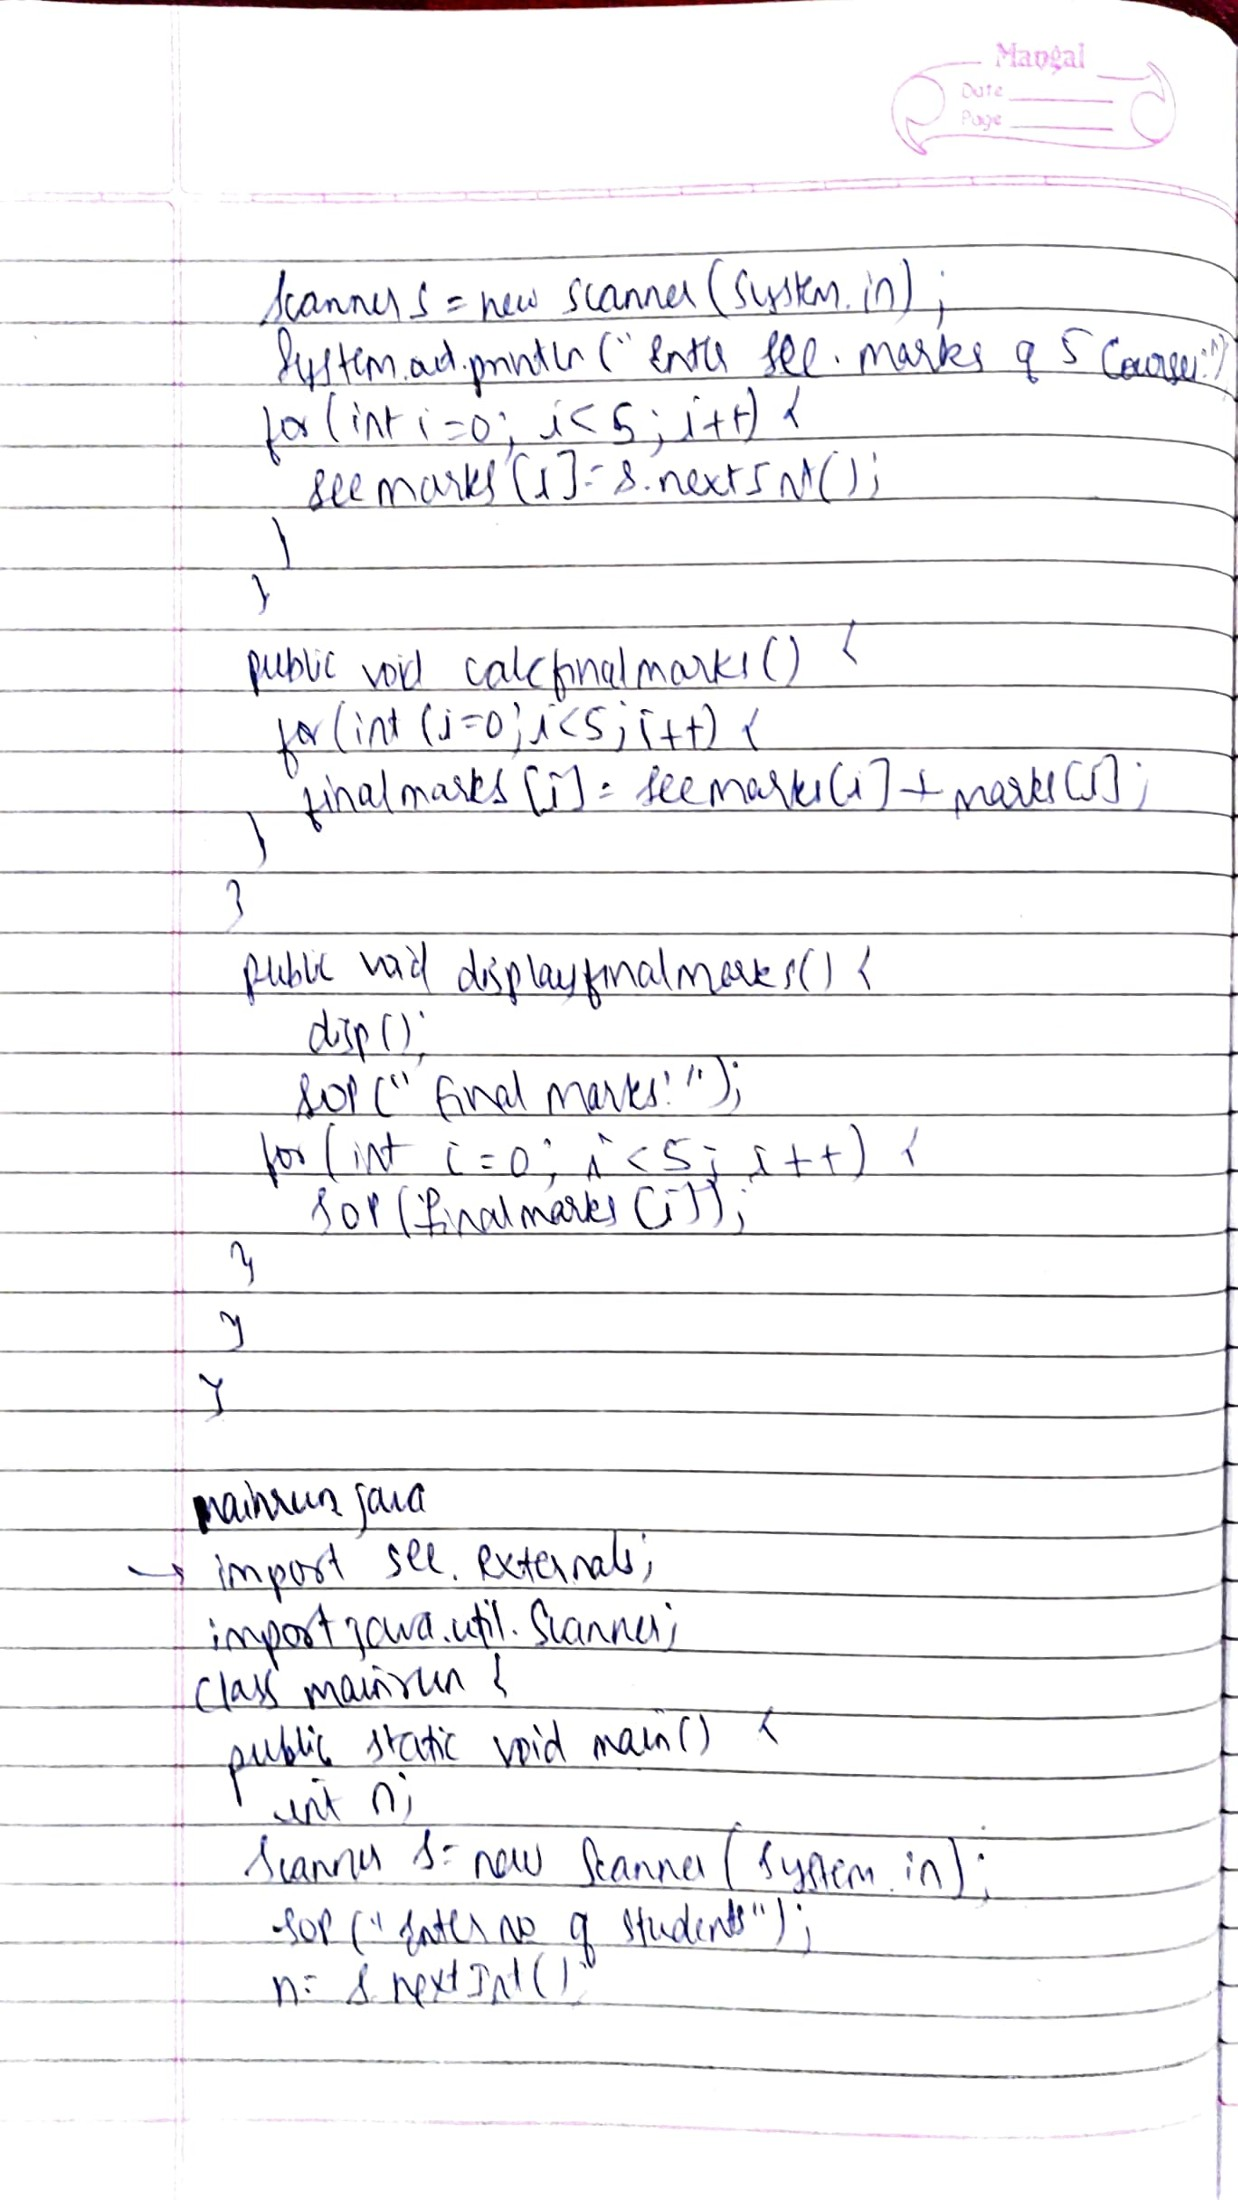 Mangal
Date
Page
Scanner s = new scanner(System.in);
System.out.println("Enter see. marks of 5 Courses:")
for(int i=0; i<5; i++) {
seemarks[i]=s.nextInt();
}
}
public void calcfinalmarks() {
for(int (i=0; i<5; i++) {
finalmarks[i] = seemarks[i] + marks[i];
}
}
public void displayfinalmarks() {
disp();
SOP(" final marks:");
for(int i=0; i<5; i++) {
SOP(finalmarks[i]);
}
}
}
mainrun java
→ import see. externals;
import java.util. Scanner;
class mainrun {
public static void main() {
int n;
Scanner s= new Scanner(System.in);
SOP("Enter no of students");
n= s.nextInt();